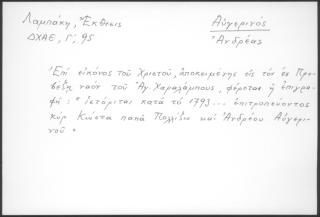 Λαμπάκη, Ἔκθεσις
ΔΧΑΕ, Γ', 95
Αὐγερινός
Ἀνδρέας
Ἐπί εἰκόνος τοῦ Χριστοῦ, ἀποκειμένης εἰς τόν ἐν Πρε
βέζῃ ναόν τοῦ Ἁγ. Χαραλάμπους, φέρεται ἡ ἐπιγρα
φή: "ἱστόριται κατά τό 1793... ἐπιτροπεύοντος
κύρ Κώστα παπᾶ καί Ἀνδρέου Αὐγερι
νοῦ"